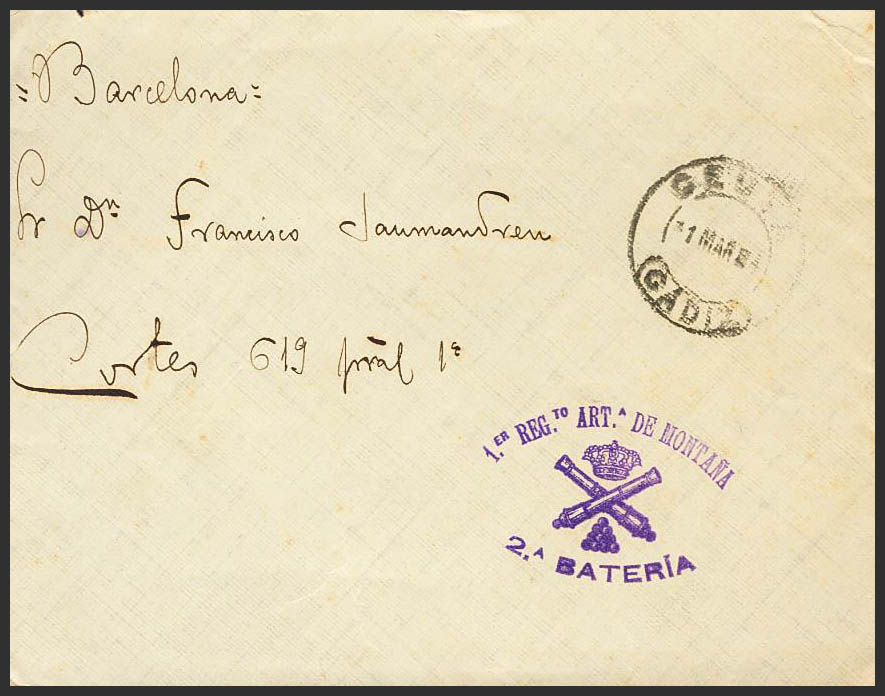 =Barcelona=
Sr Dn Francisco Jaumandreu
Cortes 619 pral 1ª
CEUTA
1 MAR
(CÁDIZ)
1.ER REG.TO ART.A DE MONTAÑA
2.A BATERÍA